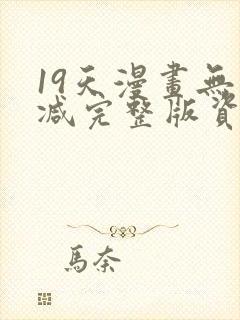 19天漫畫無
减完整版資
馬奈